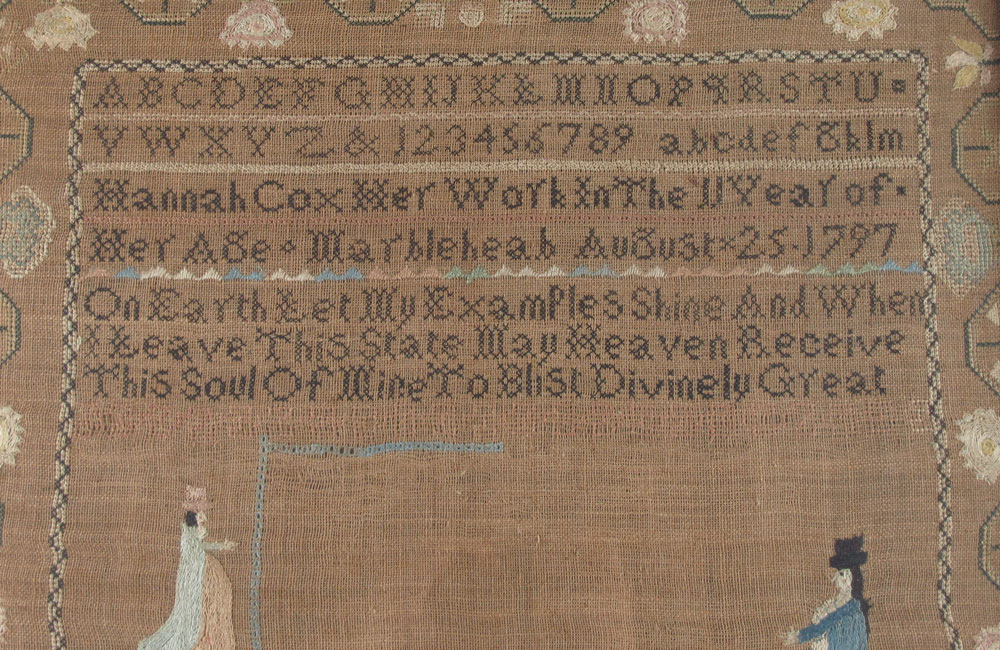 ABCDEFGHIJKLMNOPqRSTU
VWXYZ&123456789 abcdefgklm
Hannah Cox Her Work In The 11 Year of
Her Age Marblehead August 25 1797
On Earth Let My Examples Shine And When
I Leave This State May Heaven Receive
This Soul Of Mine To Blist Divinely Great